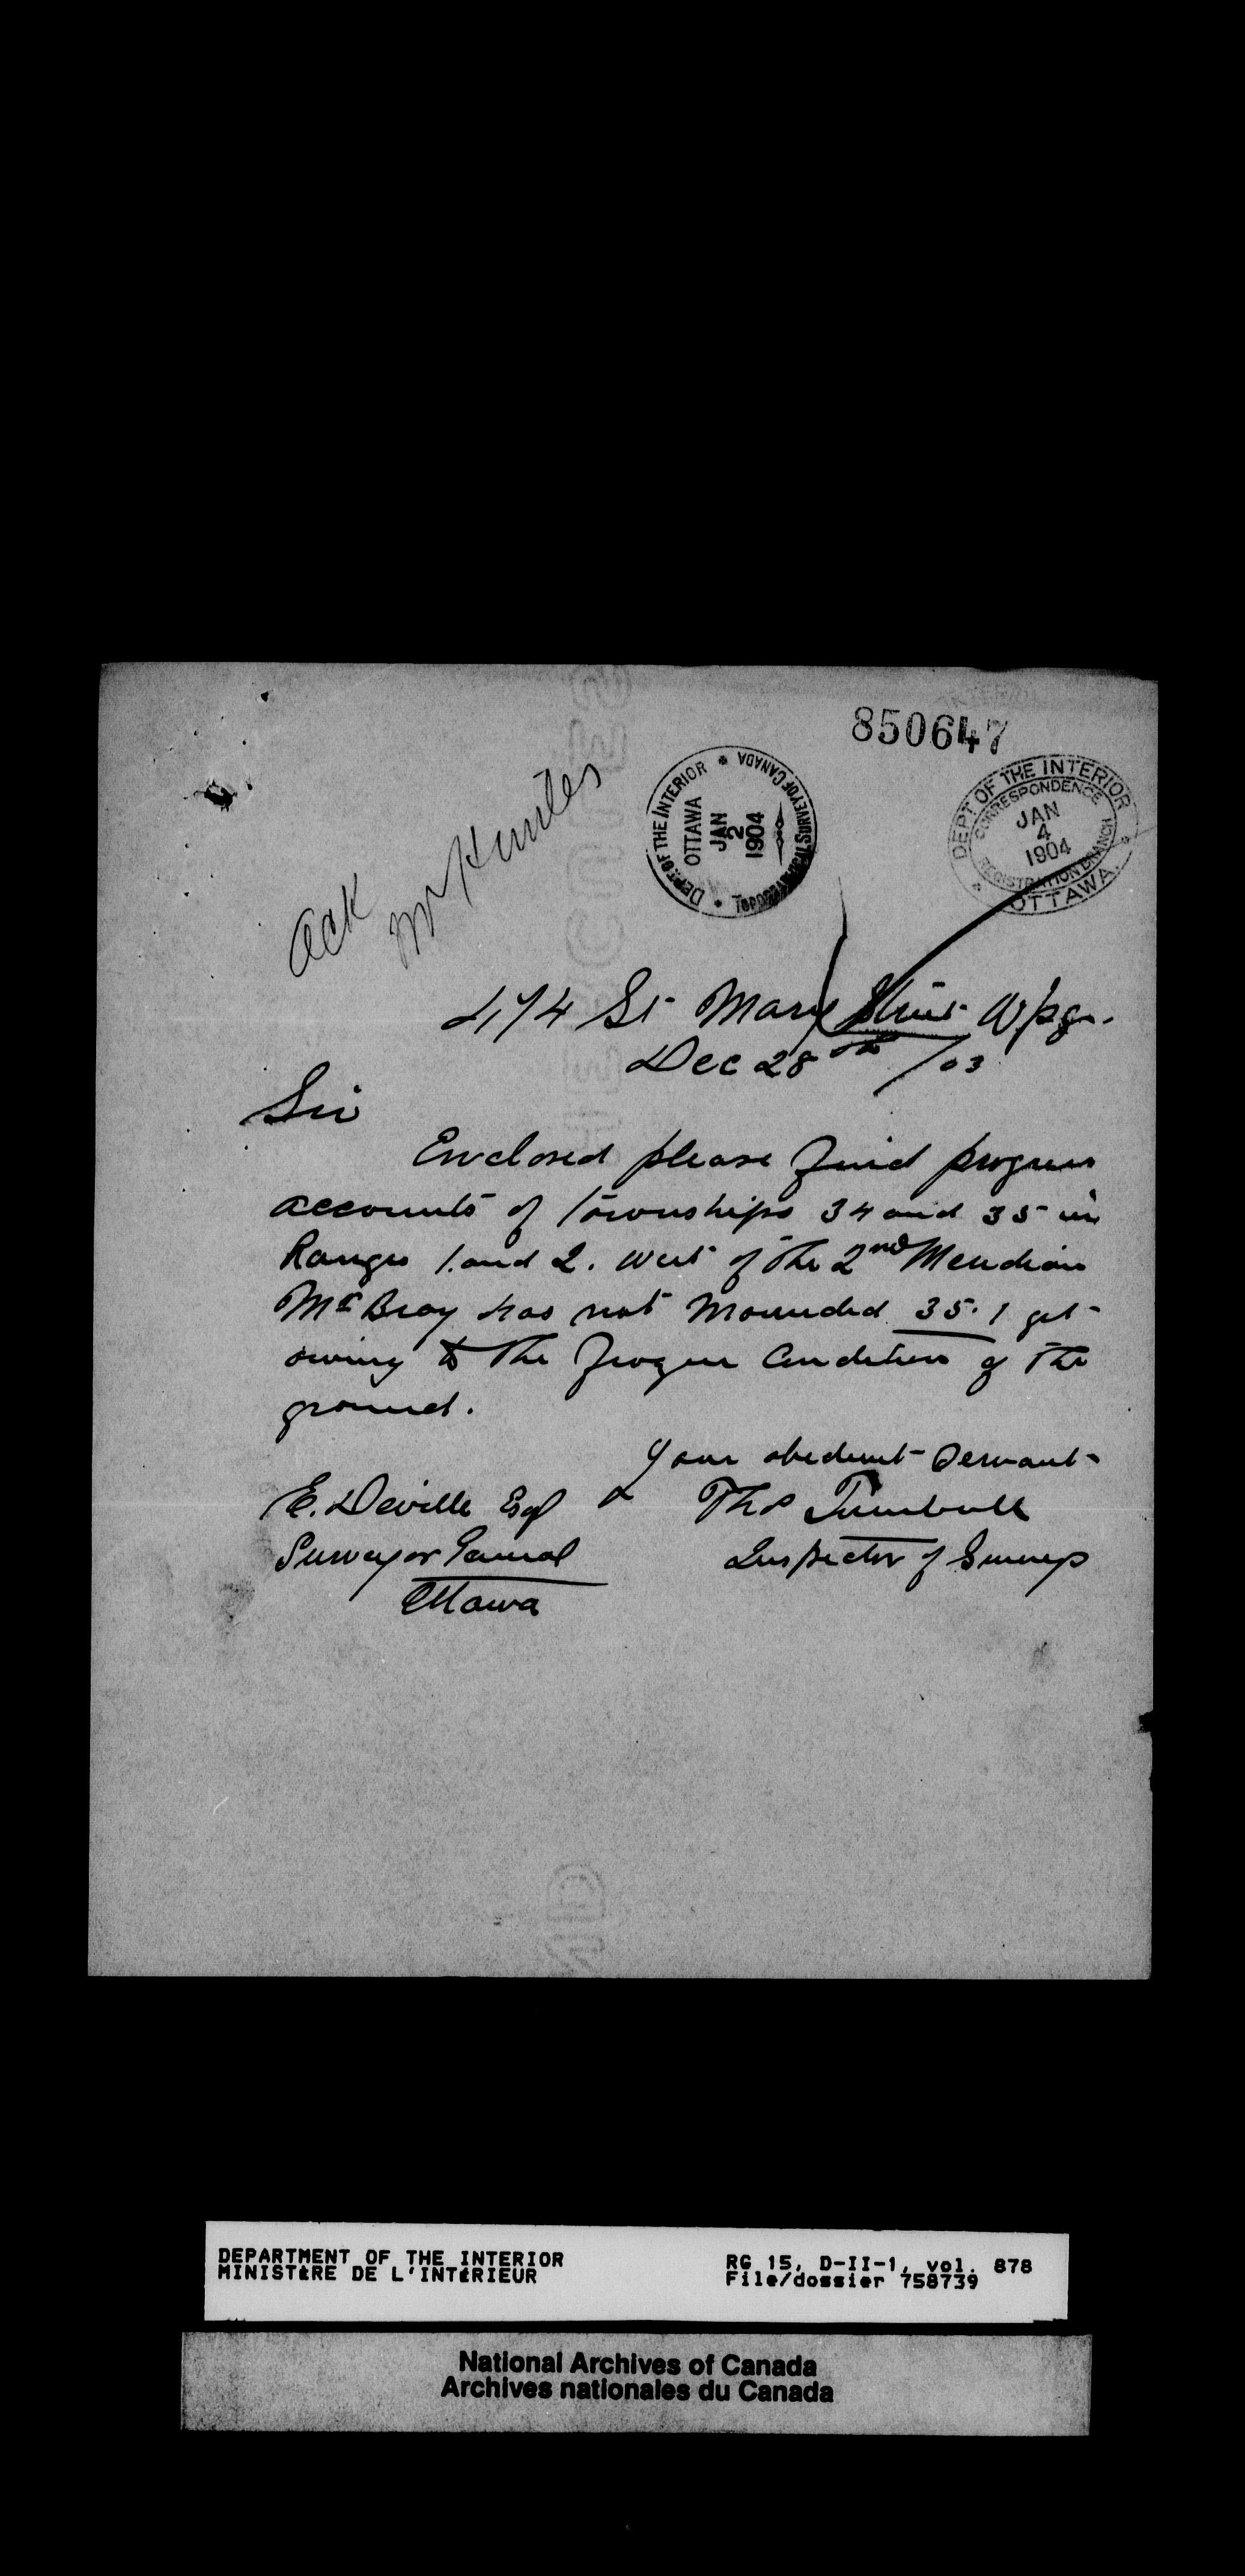 850647
DEPT OF THE INTERIOR * TOPOGRAPHICAL SURVEY OF CANADA *
OTTAWA
JAN
2
1904
DEPT OF THE INTERIOR * OTTAWA *
CORRESPONDENCE REGISTRATION BRANCH
JAN
4
1904
Ack
Mr
474 St Mary Street Wpg.
Dec 28th /03
Sir
Enclosed please find progress
accounts of Townships 34 and 35 in
Ranges 1 and 2. West of the 2nd Meridian
Mc Bray has not mounded 35.1 yet
owing to the frozen Condition of the
ground.
Your obedient Servant
Thos Turnbull
Inspector of Surveys
E. Deville Esq
Surveyor General
Ottawa
DEPARTMENT OF THE INTERIOR
MINISTÈRE DE L'INTÉRIEUR
RG 15, D-II-1, vol. 878
File/dossier 758739
National Archives of Canada
Archives nationales du Canada